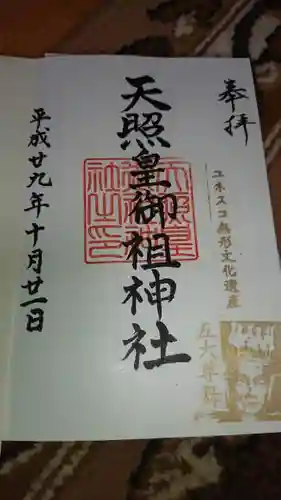 奉拝
ユネスコ無形文化遺産
天照皇御祖神社
平成廿九年十月廿一日